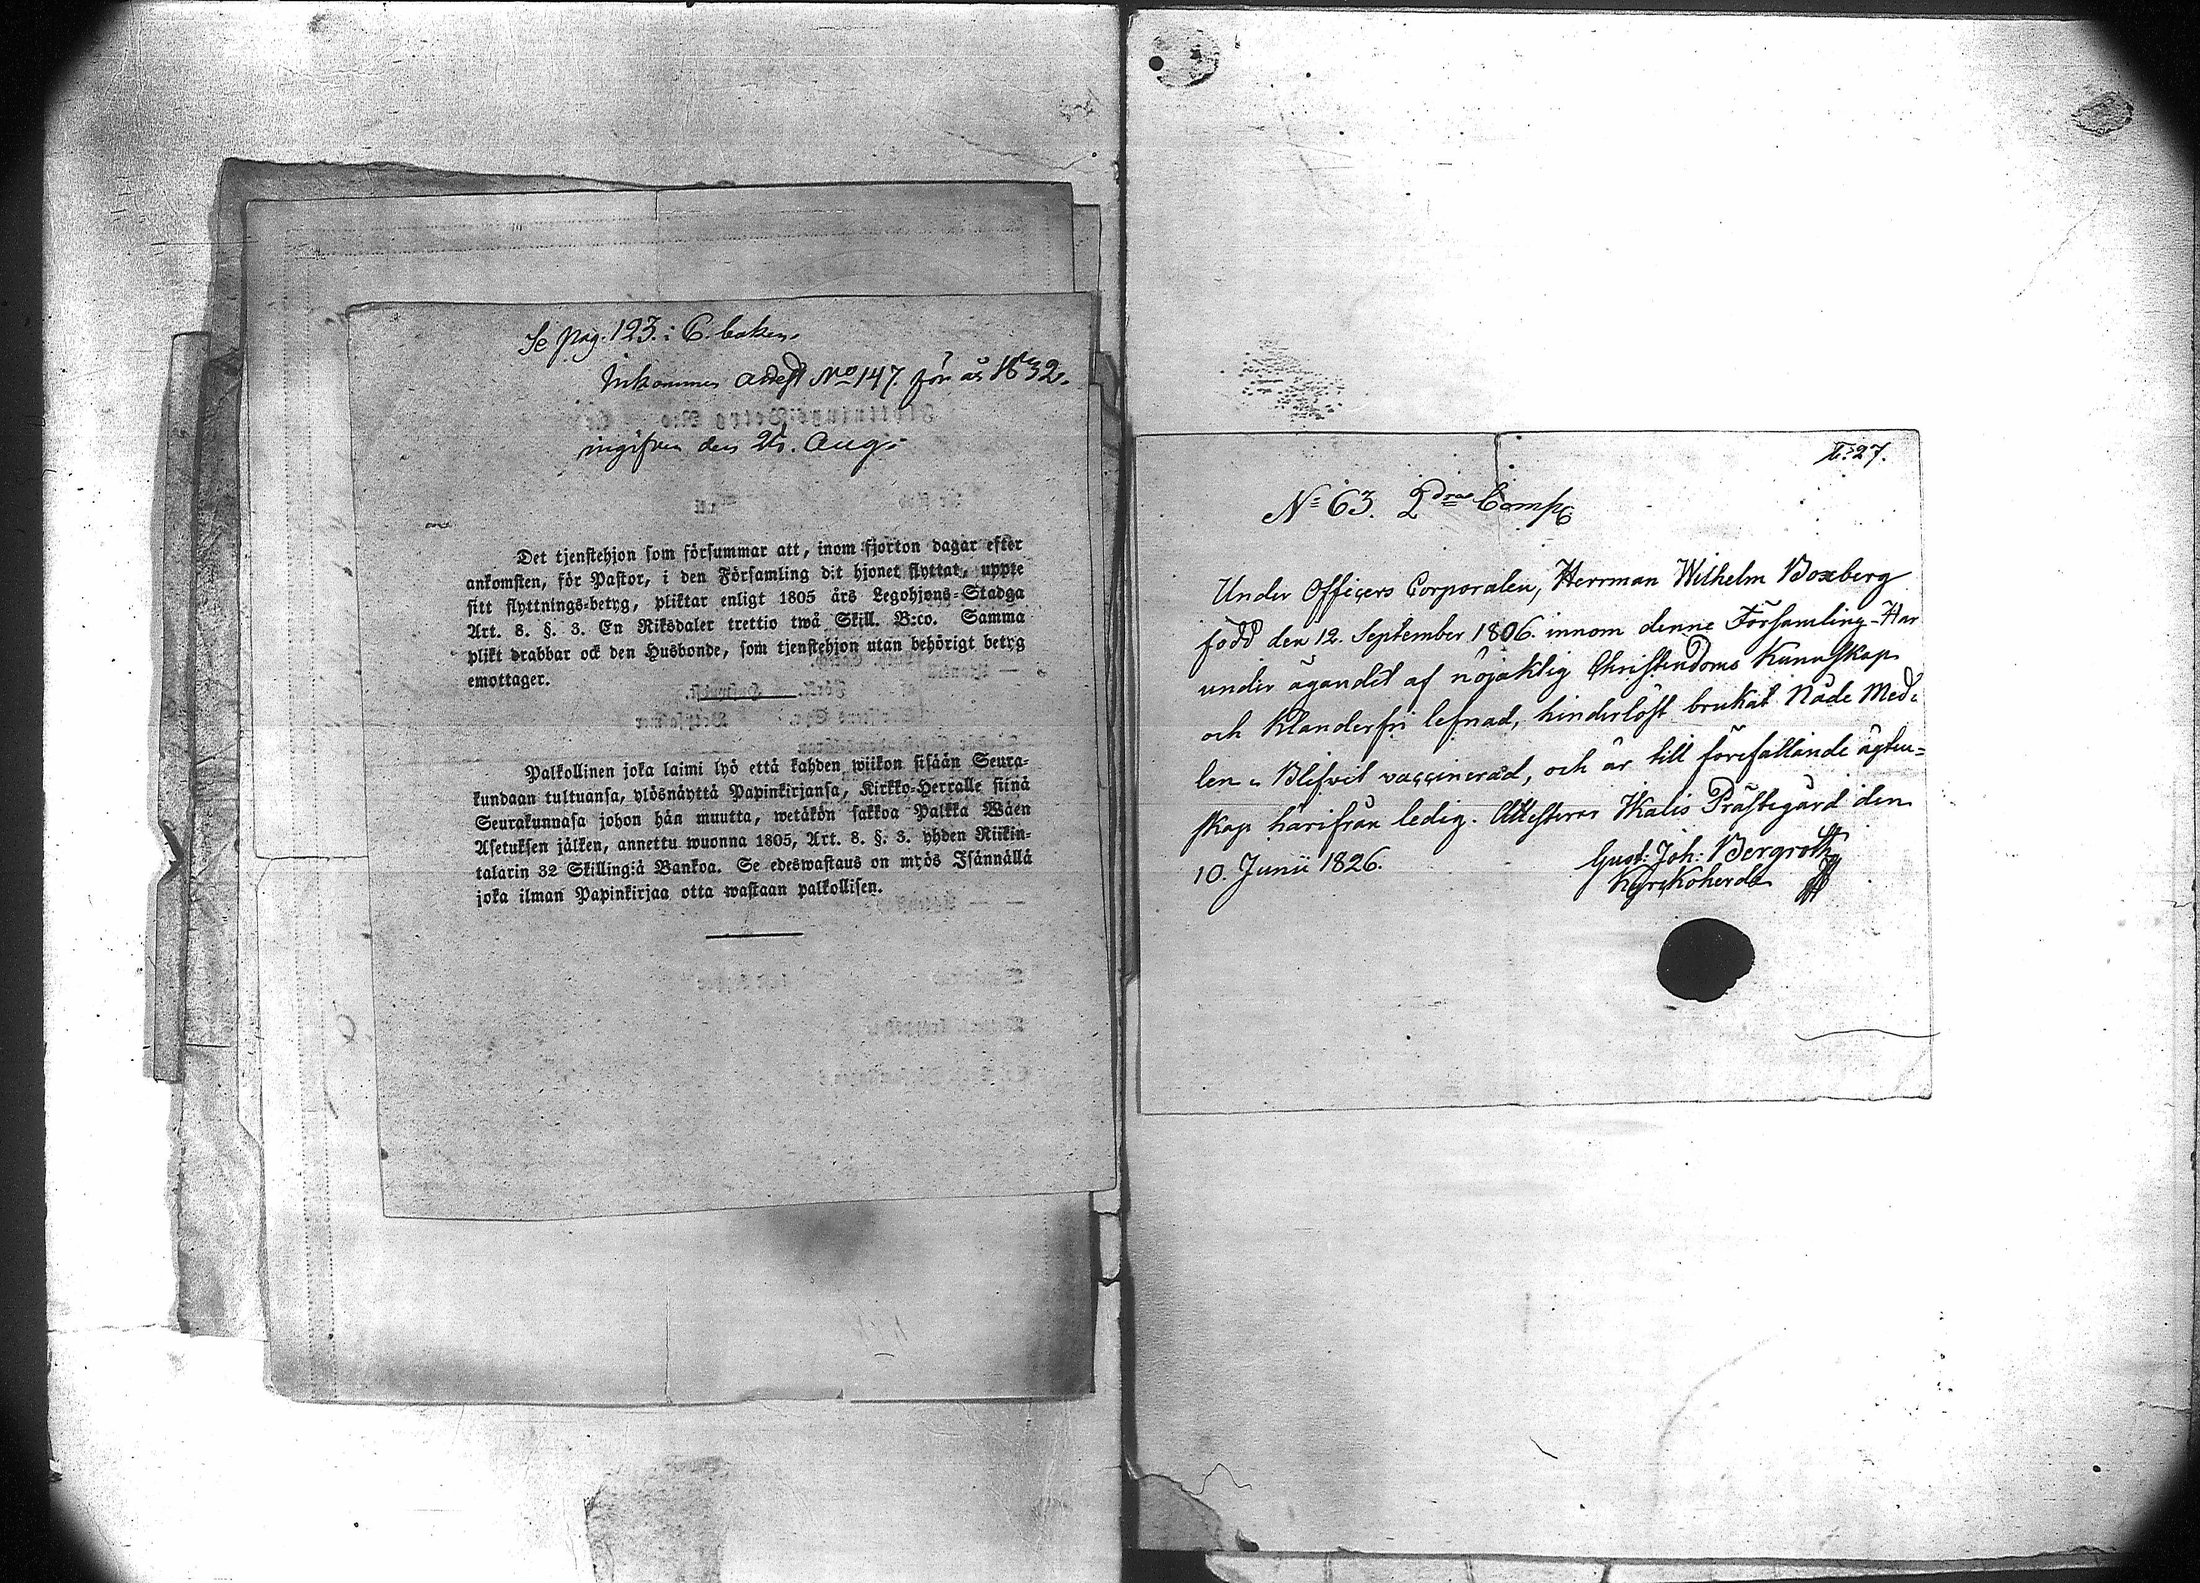 Se pag. 123. i C. boken.
Inkommen attest No 147. för år 1832.
ingifven den 26. Aug:
Det tjenstehjon som försummar att, inom fjorton dagar efter
ankomsten, för Pastor, i den Församling dit hjonet flyttat, uppte
sitt flyttnings-betyg, pliktar enligt 1805 års Legohjons-Stadga
Art. 8. §. 3. En Riksdaler trettio twå Skill. B:co. Samma
plikt drabbar ock den Husbonde, som tjenstehjon utan behörigt betyg
emottager.
Palkollinen joka laimi lyö että kahden wiikon sisään Seura-
kundaan tultuansa, ylösnäyttä Papinkirjansa, Kirkko-Herralle siinä
Seurakunnasa johon hän muutta, wetäkön sakkoa Palkka Wäen
Asetuksen jälken, annettu wuonna 1805, Art. 8. §. 3. yhden Riikin-
talarin 32 Skilling:ä Bankoa. Se edeswastaus on myös Isännällä
joka ilman Papinkirjaa otta wastaan palkollisen.
27.
No 63. 2dra Comp.
Under Officers Corporalen, Herrman Wilhelm Boxberg
född den 12. September 1806. innom denne Församling - Har
under ägandet af nöjaktig Christendoms Kunnskap
och Klanderfri lefnad, hinderlöst brukat Nåde Med-
len - Blifvit vaccinerad, och är till förefallande ägten=
skap härifrån ledig. Attesterar Ikalis Prästegård den
10. Junii 1826.
Gust: Joh: Bergroth
Kyrckoherde